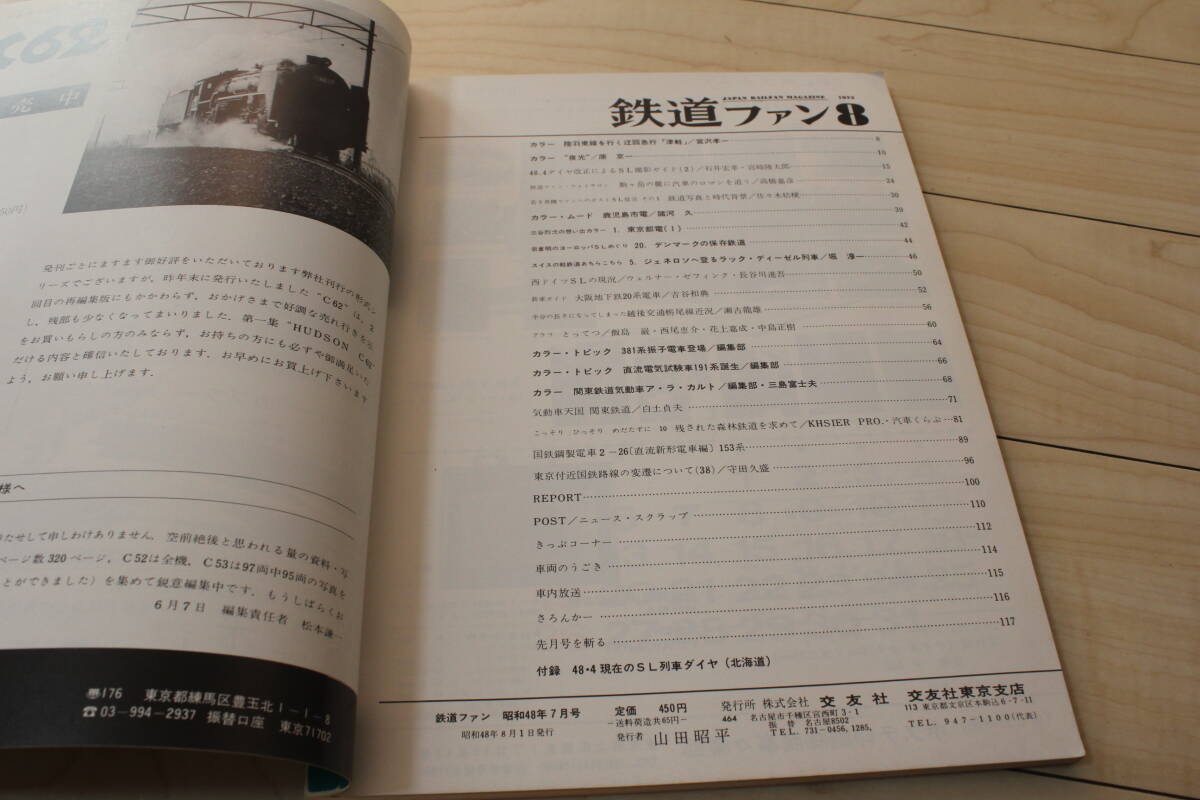 C62
売中
50円)
発刊ごとにますます御好評をいただいております弊社刊行の形式シ
リーズでございますが、昨年末に発行いたしました“C62”は、2
回目の再編集版にもかかわらず、おかげさまで好調な売れ行きを示
し、残部も少なくなってまいりました。第一集“HUDSON C62”
をお買いもらしの方のみならず、お持ちの方にも必ずや御満足いた
だける内容と確信いたしております。お早めにお買上げ下さいます
よう、お願い申し上げます。
様へ
たせして申しわけありません。空前絶後と思われる量の資料・写
ページ数320ページ，C52は全機，C53は97両中95両の写真を
とができました）を集めて鋭意編集中です．もうしばらくお
6月7日 編集責任者 松本謙一
〠176 東京都練馬区豊玉北1-1-8
☎03-994-2937 振替口座 東京71702
JAPAN RAILFAN MAGAZINE 1973
鉄道ファン8
カラー 陸羽東線を行く迂回急行「津軽」／宮沢孝一 6
カラー “夜光”／蓬 京一 10
48.4ダイヤ改正によるSL撮影ガイド(2)／石井宏幸・宮崎隆太郎 15
駒ヶ岳の麓に汽車のロマンを追う／高橋嘉彦 24
鉄道写真と時代背景／佐々木桔梗 30
カラー・ムード 鹿児島市電／諸河 久 39
三谷烈弌の想い出カラー 1．東京都電(1) 42
岩倉明のヨーロッパSLめぐり 20．デンマークの保存鉄道 44
スイスの軽鉄道あちらこちら 5．ジェネロソへ登るラック・ディーゼル列車／堀 淳一 46
西ドイツSLの現況／ヴェルナー・ゼフィンク・長谷川進吾 50
新車ガイド 大阪地下鉄20系電車／吉谷和典 52
半分の長さになってしまった越後交通栃尾線近況／瀬古龍雄 56
グラフ とってつ／飯島 巌・西尾恵介・花上嘉成・中島正樹 60
カラー・トピック 381系振子電車登場／編集部 64
カラー・トピック 直流電気試験車191系誕生／編集部 66
カラー 関東鉄道気動車ア・ラ・カルト／編集部・三島富士夫 68
気動車天国 関東鉄道／白土貞夫 71
こっそり ひっそり めだたずに 10 残された森林鉄道を求めて／KHSIER PRO.・汽車くらぶ 81
国鉄鋼製電車2-26〔直流新形電車編〕153系 89
東京付近国鉄路線の変遷について(38)／守田久盛 96
REPORT 100
POST／ニュース・スクラップ 110
きっぷコーナー 112
車両のうごき 114
車内放送 115
さろんかー 116
先月号を斬る 117
付録 48・4現在のSL列車ダイヤ（北海道）
鉄道ファン 昭和48年7月号
昭和48年8月1日発行
定価 450円
-送料荷造共65円-
発行者 山田昭平
発行所 株式会社 交友社
464 名古屋市千種区宮西町3・1
振替 名古屋8502
TEL. 731-0456, 1285,
交友社東京支店
113 東京都文京区本駒込6-7-11
TEL. 947-1100(代表)